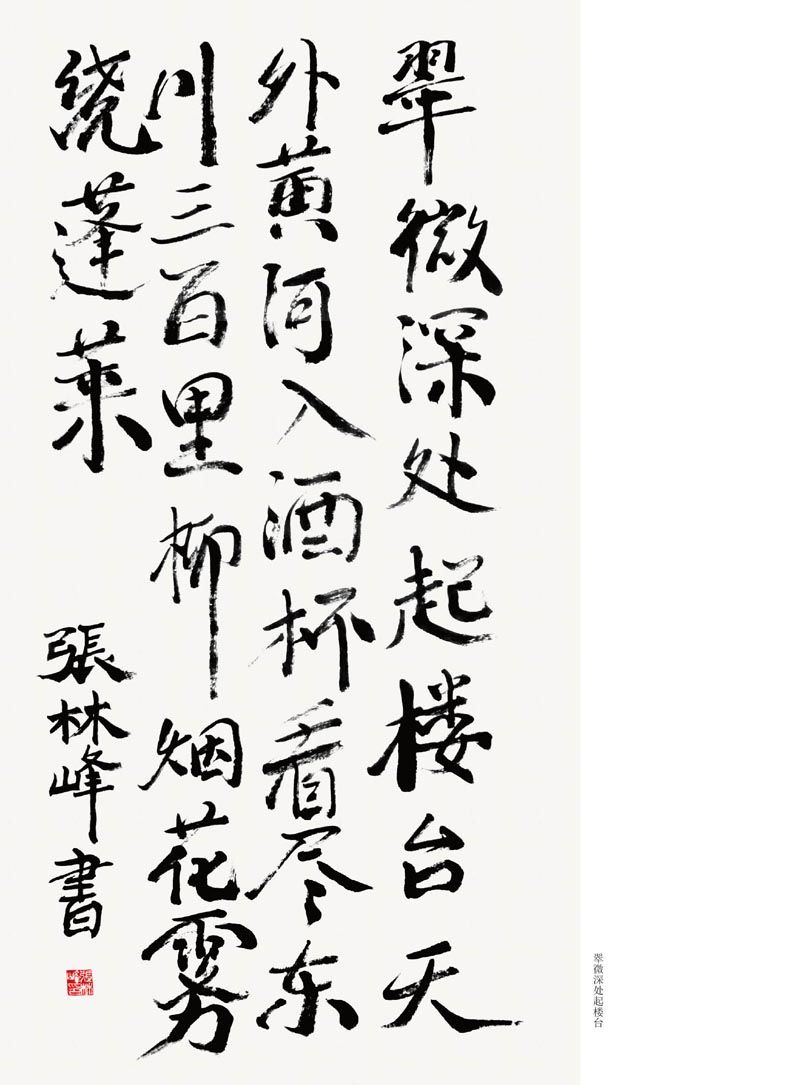 翠微深处起楼台天
外黄河入酒杯看尽东
川三百里柳烟花雾
绕蓬莱
張林峰書
張林峰印
翠微深处起楼台